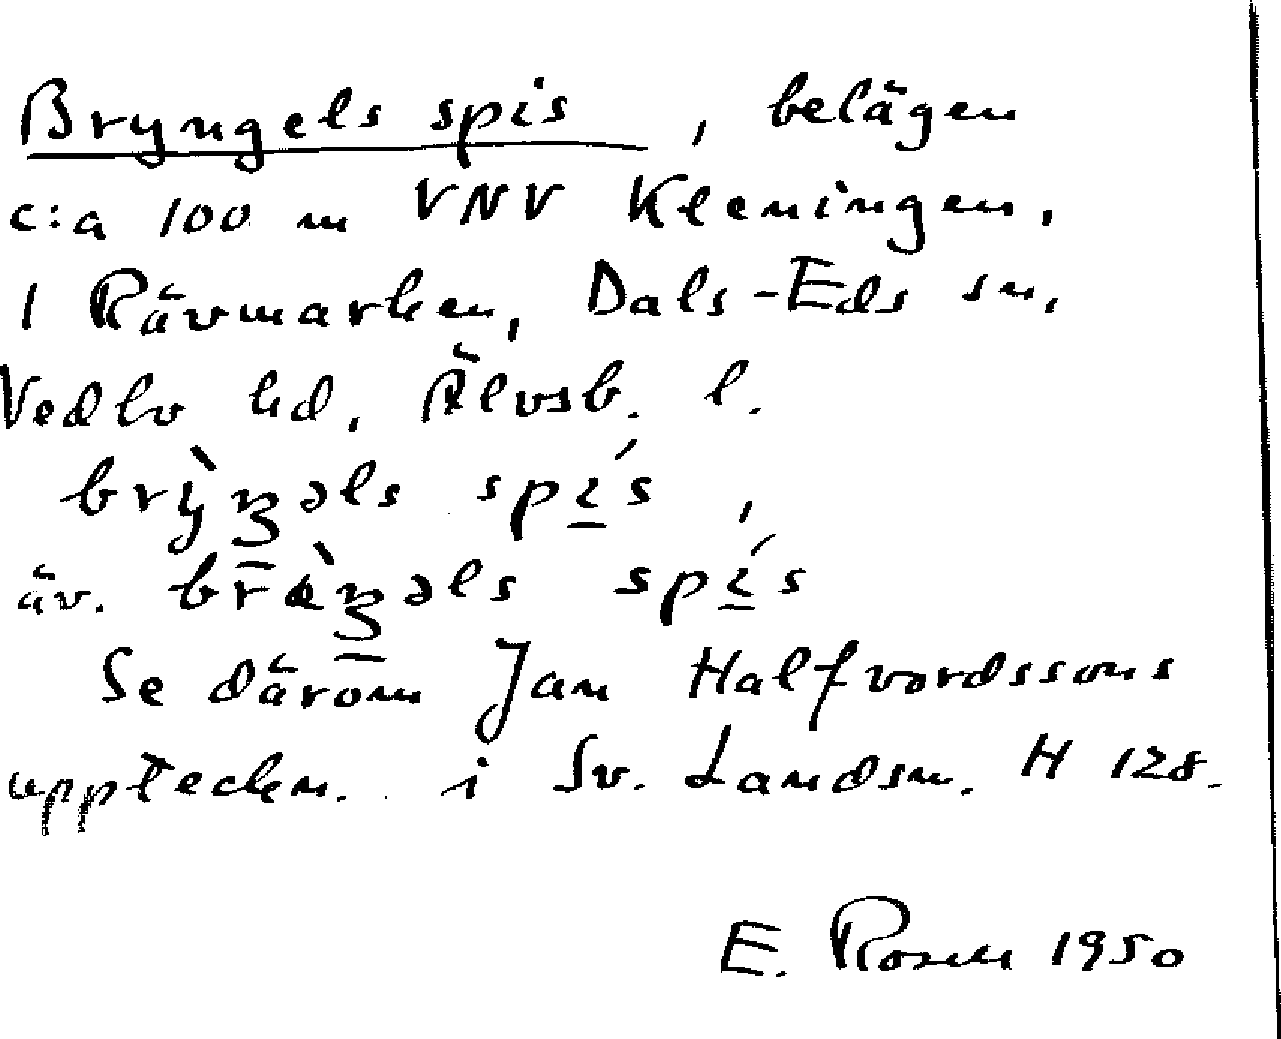 Bryngels spis, belägen
c:a 100 m VNV Kleningen.
I Rävmarken, Dals-Eds sn,
Vedbo hd, Älvsb. l.
brỳŋəls spí̲s,
äv. bræ̀ŋəls spí̲s
Se därom Jan Halfvordssons
uppteckn. i Sv. Landsm. H 128.
E. Rosen 1950